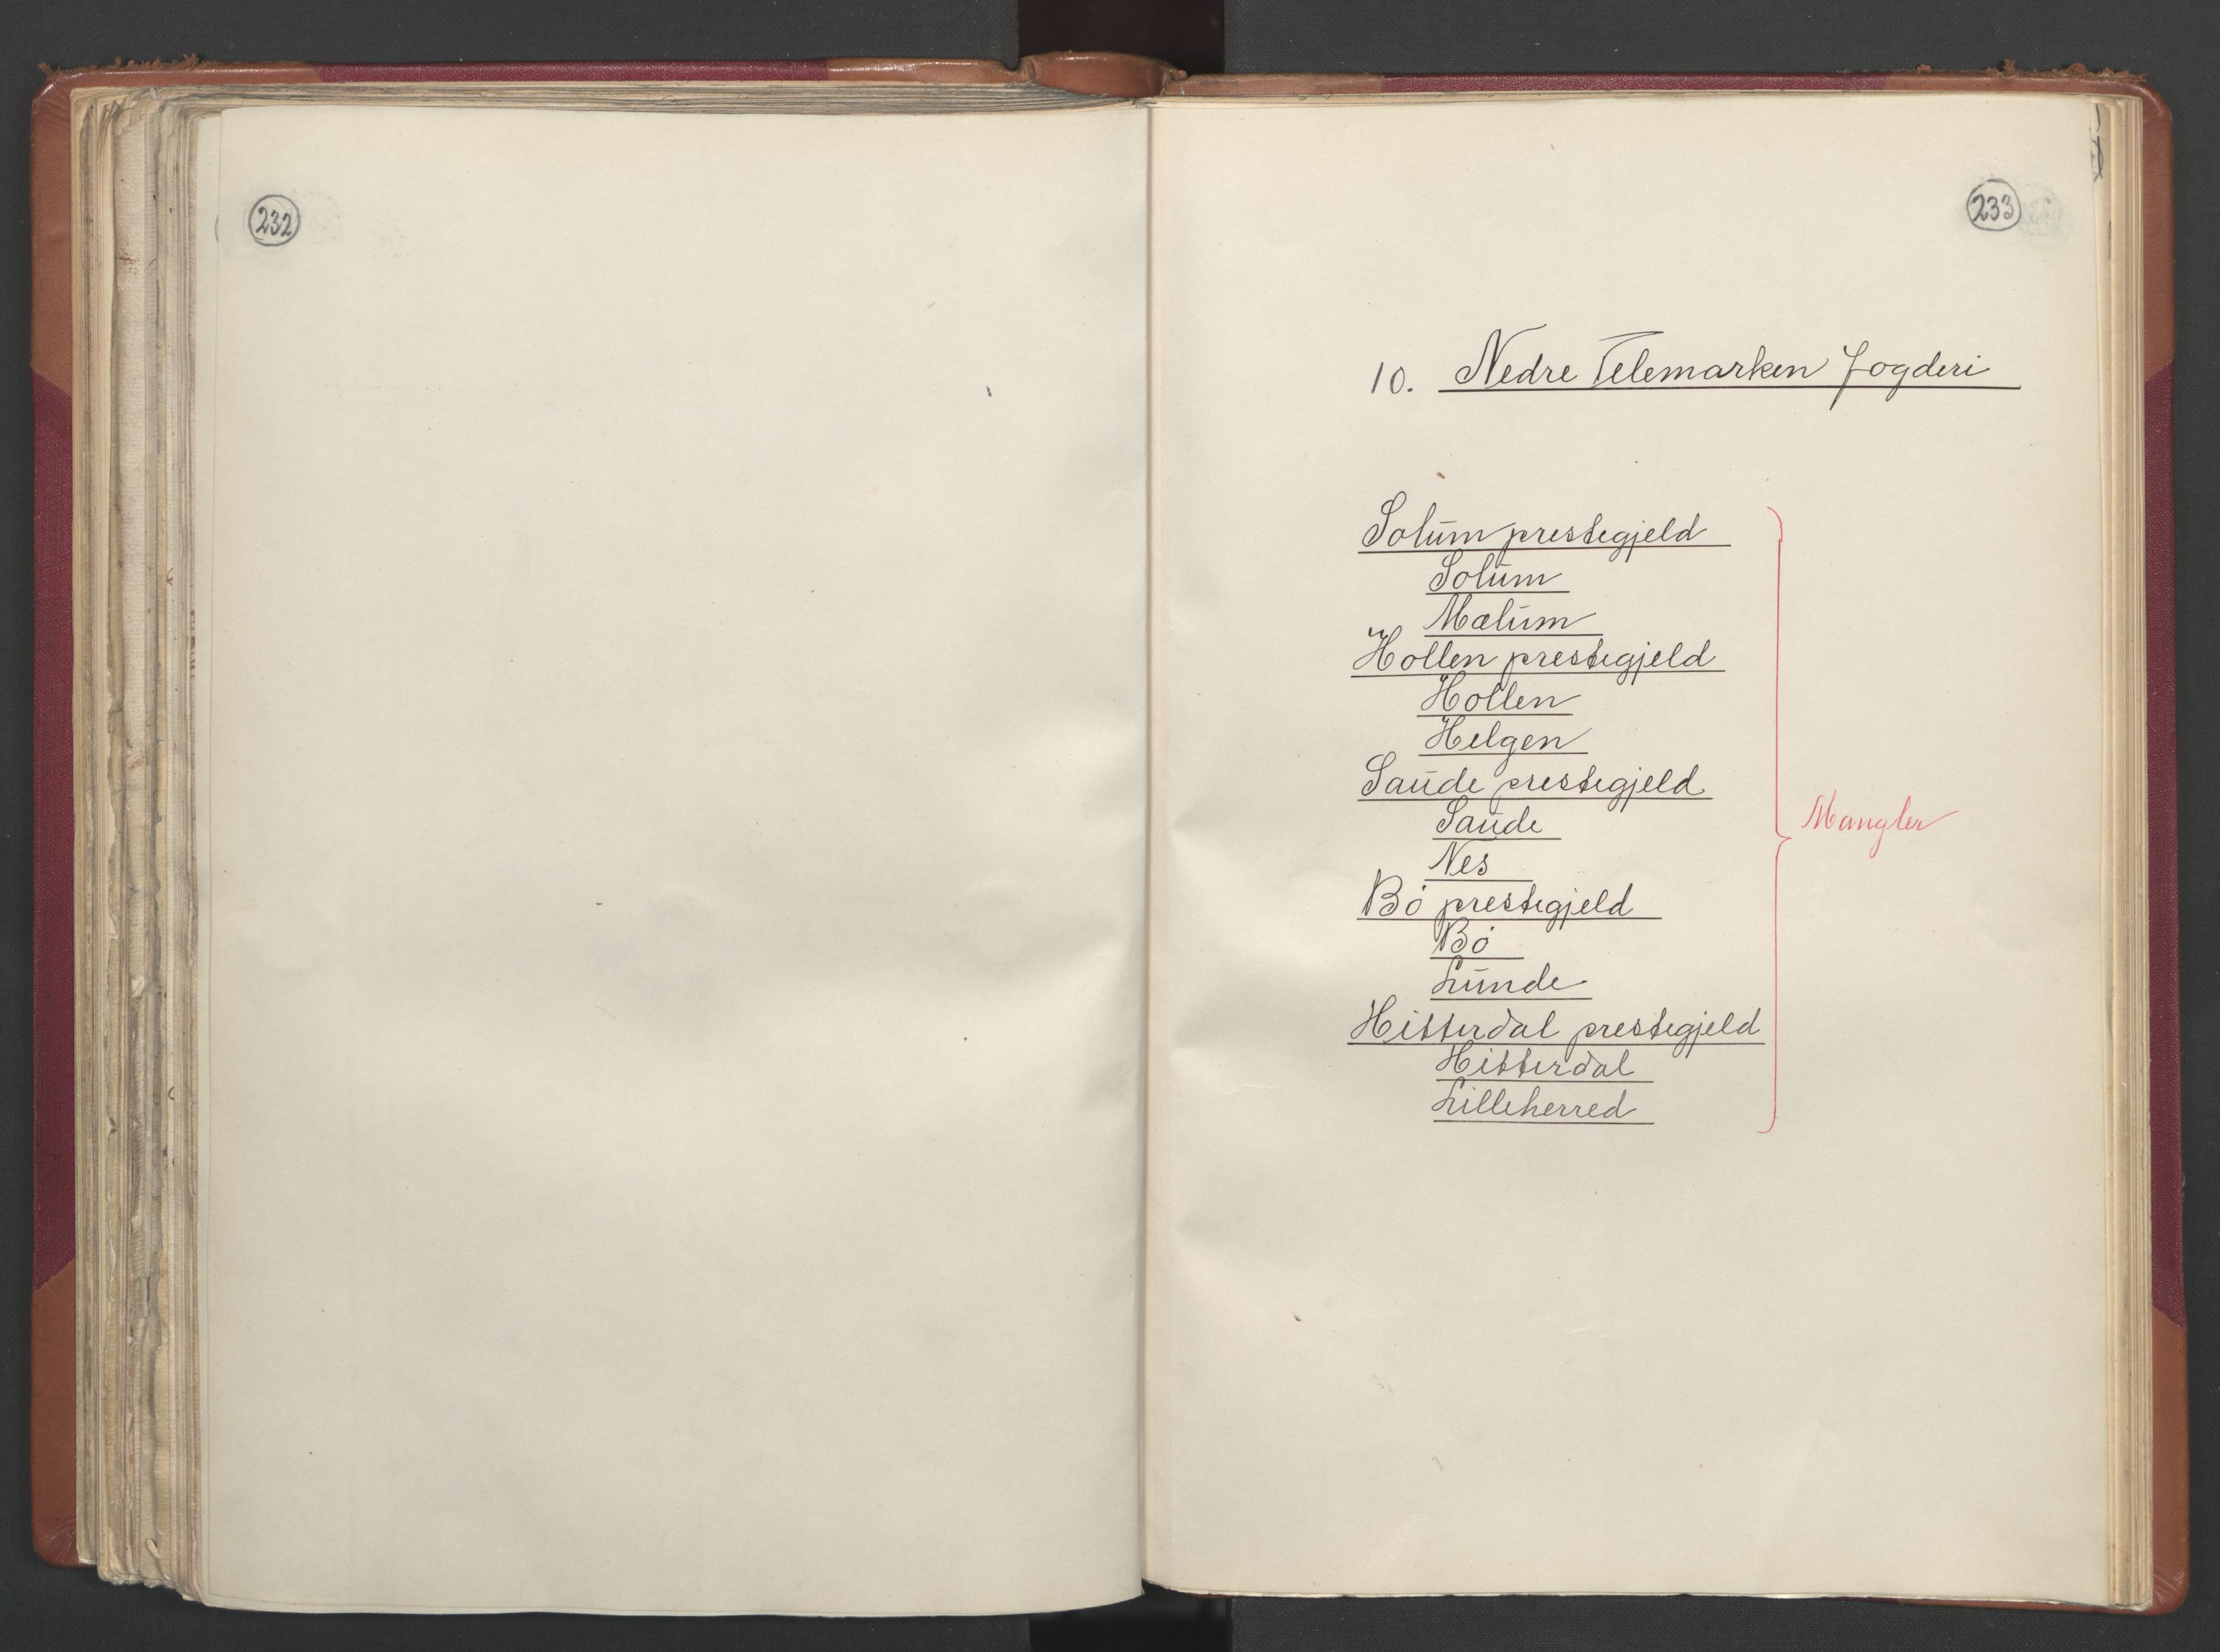 232
233
10. Nedre Telemarken Fogderi
Solum prestegjeld
Solum
Mælum
Hollen prestegjeld
Hollen
Helgen
Saude prestegjeld
Saude
Nes
Mangler
Bø prestegjeld
Bø
Lunde
Hitterdal prestegjeld
Hitterdal
Lilleherred